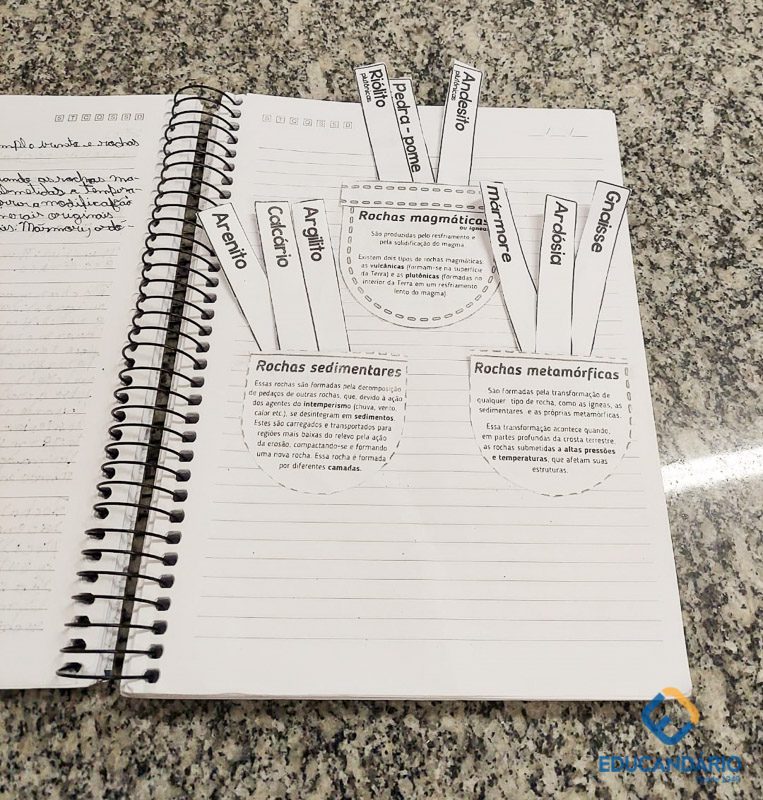 emplo basalto e rochas
quando as rochas ma-
Riólito
plutônicas
Pedra-pome
Andesito
plutônicas
Rochas magmáticas
ou ígneas
São produzidas pelo resfriamento e
pela solidificação do magma.
Existem dois tipos de rochas magmáticas:
as vulcânicas (formam-se na superfície
da Terra) e as plutônicas (formadas no
interior da Terra em um resfriamento
lento do magma).
Arenito
Calcário
Argilito
Rochas sedimentares
Essas rochas são formadas pela decomposição
de pedaços de outras rochas, que, devido à ação
dos agentes do intemperismo (chuva, vento,
calor etc.), se desintegram em sedimentos.
Estes são carregados e transportados para
regiões mais baixas do relevo pela ação
da erosão, compactando-se e formando
uma nova rocha. Essa rocha é formada
por diferentes camadas.
mármore
Ardósia
Gnaisse
Rochas metamórficas
São formadas pela transformação de
qualquer tipo de rocha, como as ígneas, as
sedimentares e as próprias metamórficas.
Essa transformação acontece quando,
em partes profundas da crosta terrestre,
as rochas submetidas a altas pressões
e temperaturas, que afetam suas
estruturas.
D S T Q Q S S
EDUCANDÁRIO